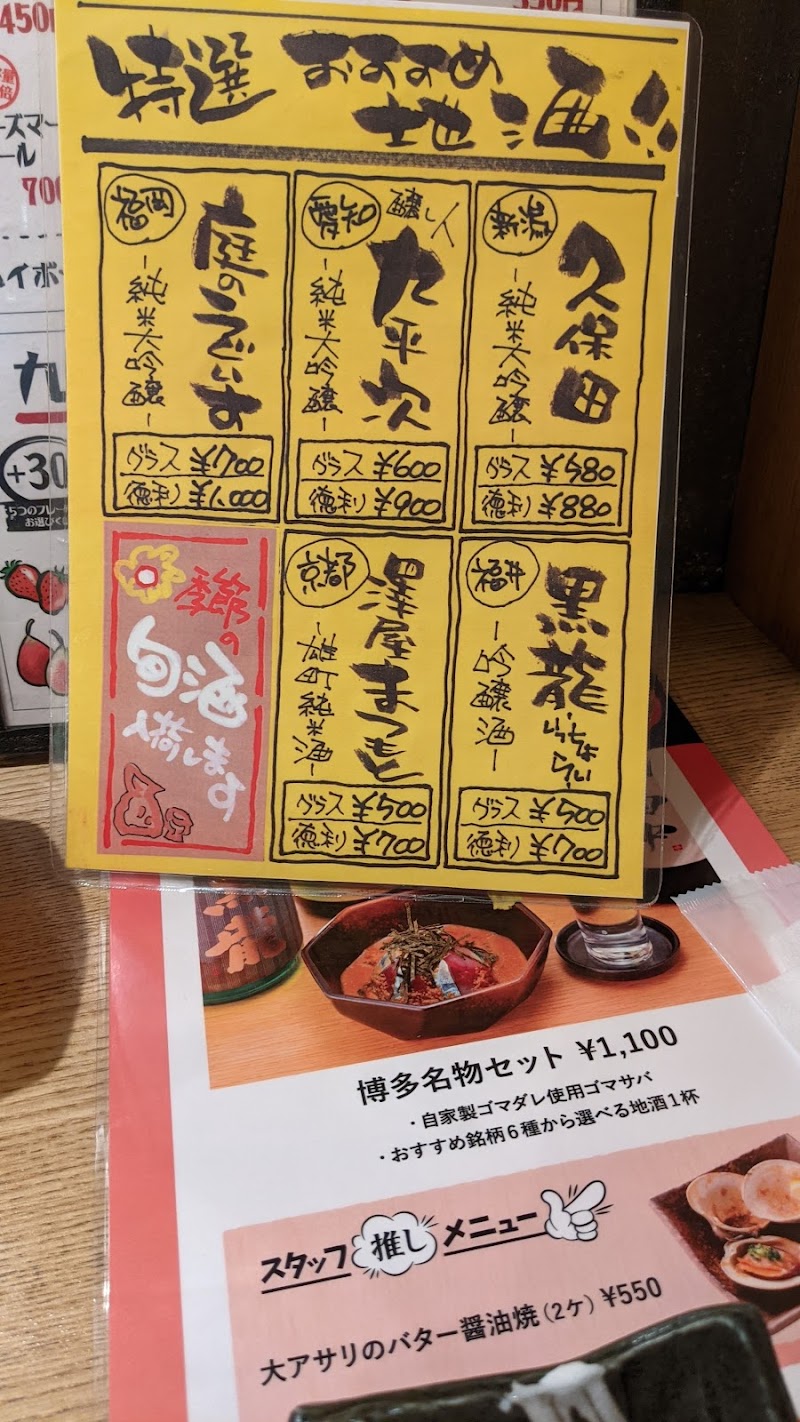 特選 おすすめ
地酒!!
新潟
久保田
-純米大吟醸-
グラス ¥580
徳利 ¥880
愛知
醸し人
九平次
-純米大吟醸-
グラス ¥600
徳利 ¥900
福岡
庭のうぐいす
-純米大吟醸-
グラス ¥700
徳利 ¥1,000
福井
黒龍
いっちょらい
-吟醸酒-
グラス ¥500
徳利 ¥700
京都
澤屋まつもと
-雄町純米酒-
グラス ¥500
徳利 ¥700
季節の
旬酒
入荷します
450
700
ール
イボー
九
+30
5つのフレー
お選びく
博多名物セット ¥1,100
・自家製ゴマダレ使用ゴマサバ
・おすすめ銘柄6種から選べる地酒1杯
スタッフ推しメニュー
大アサリのバター醤油焼(2ケ) ¥550